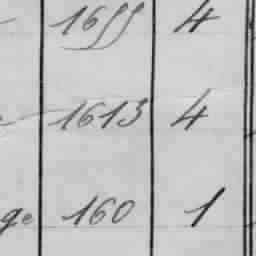 1655 4
1613 4
ge 160 1